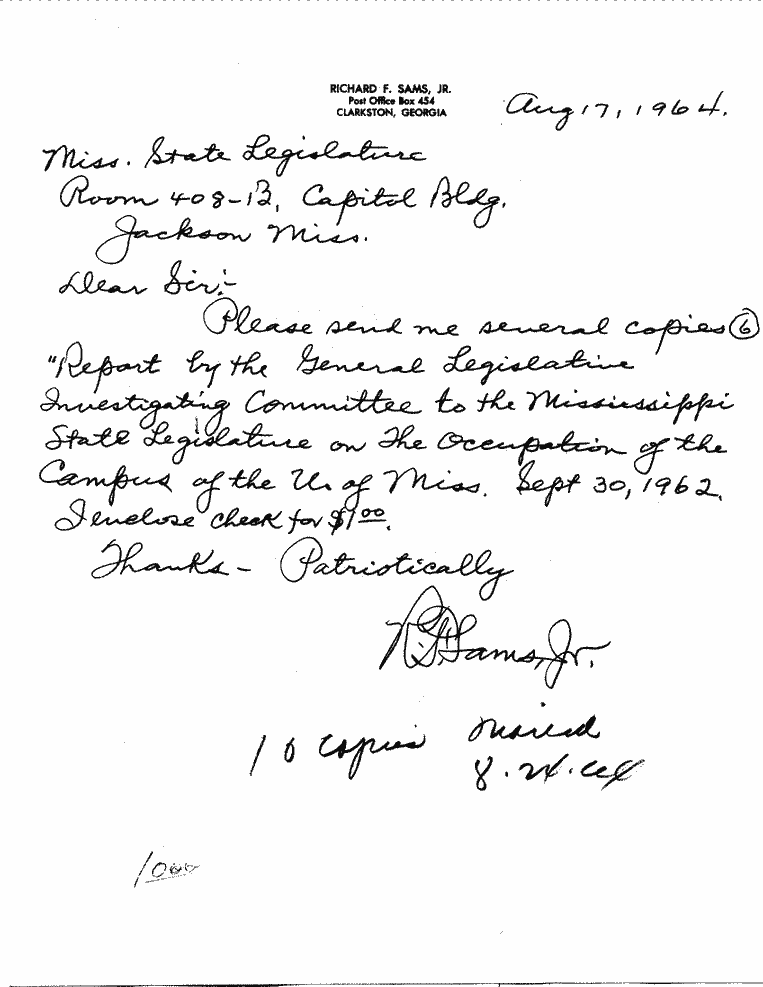 RICHARD F. SAMS, JR.
Post Office Box 454
CLARKSTON, GEORGIA
Aug 17, 1964.
Miss. State Legislature
Room 408-B, Capitol Bldg.
Jackson Miss.
Dear Sir:-
Please send me several copies (6)
"Report by the General Legislative
Investigating Committee to the Mississippi
State Legislature on The Occupation of the
Campus of the U. of Miss. Sept 30, 1962.
I enclose check for $1.00.
Thanks - Patriotically
R.F. Sams, Jr.
10 copies mailed
8.24.64
1000